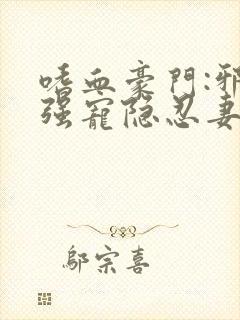 嗜血豪門:邪
强寵隐忍妻
鄔宗喜